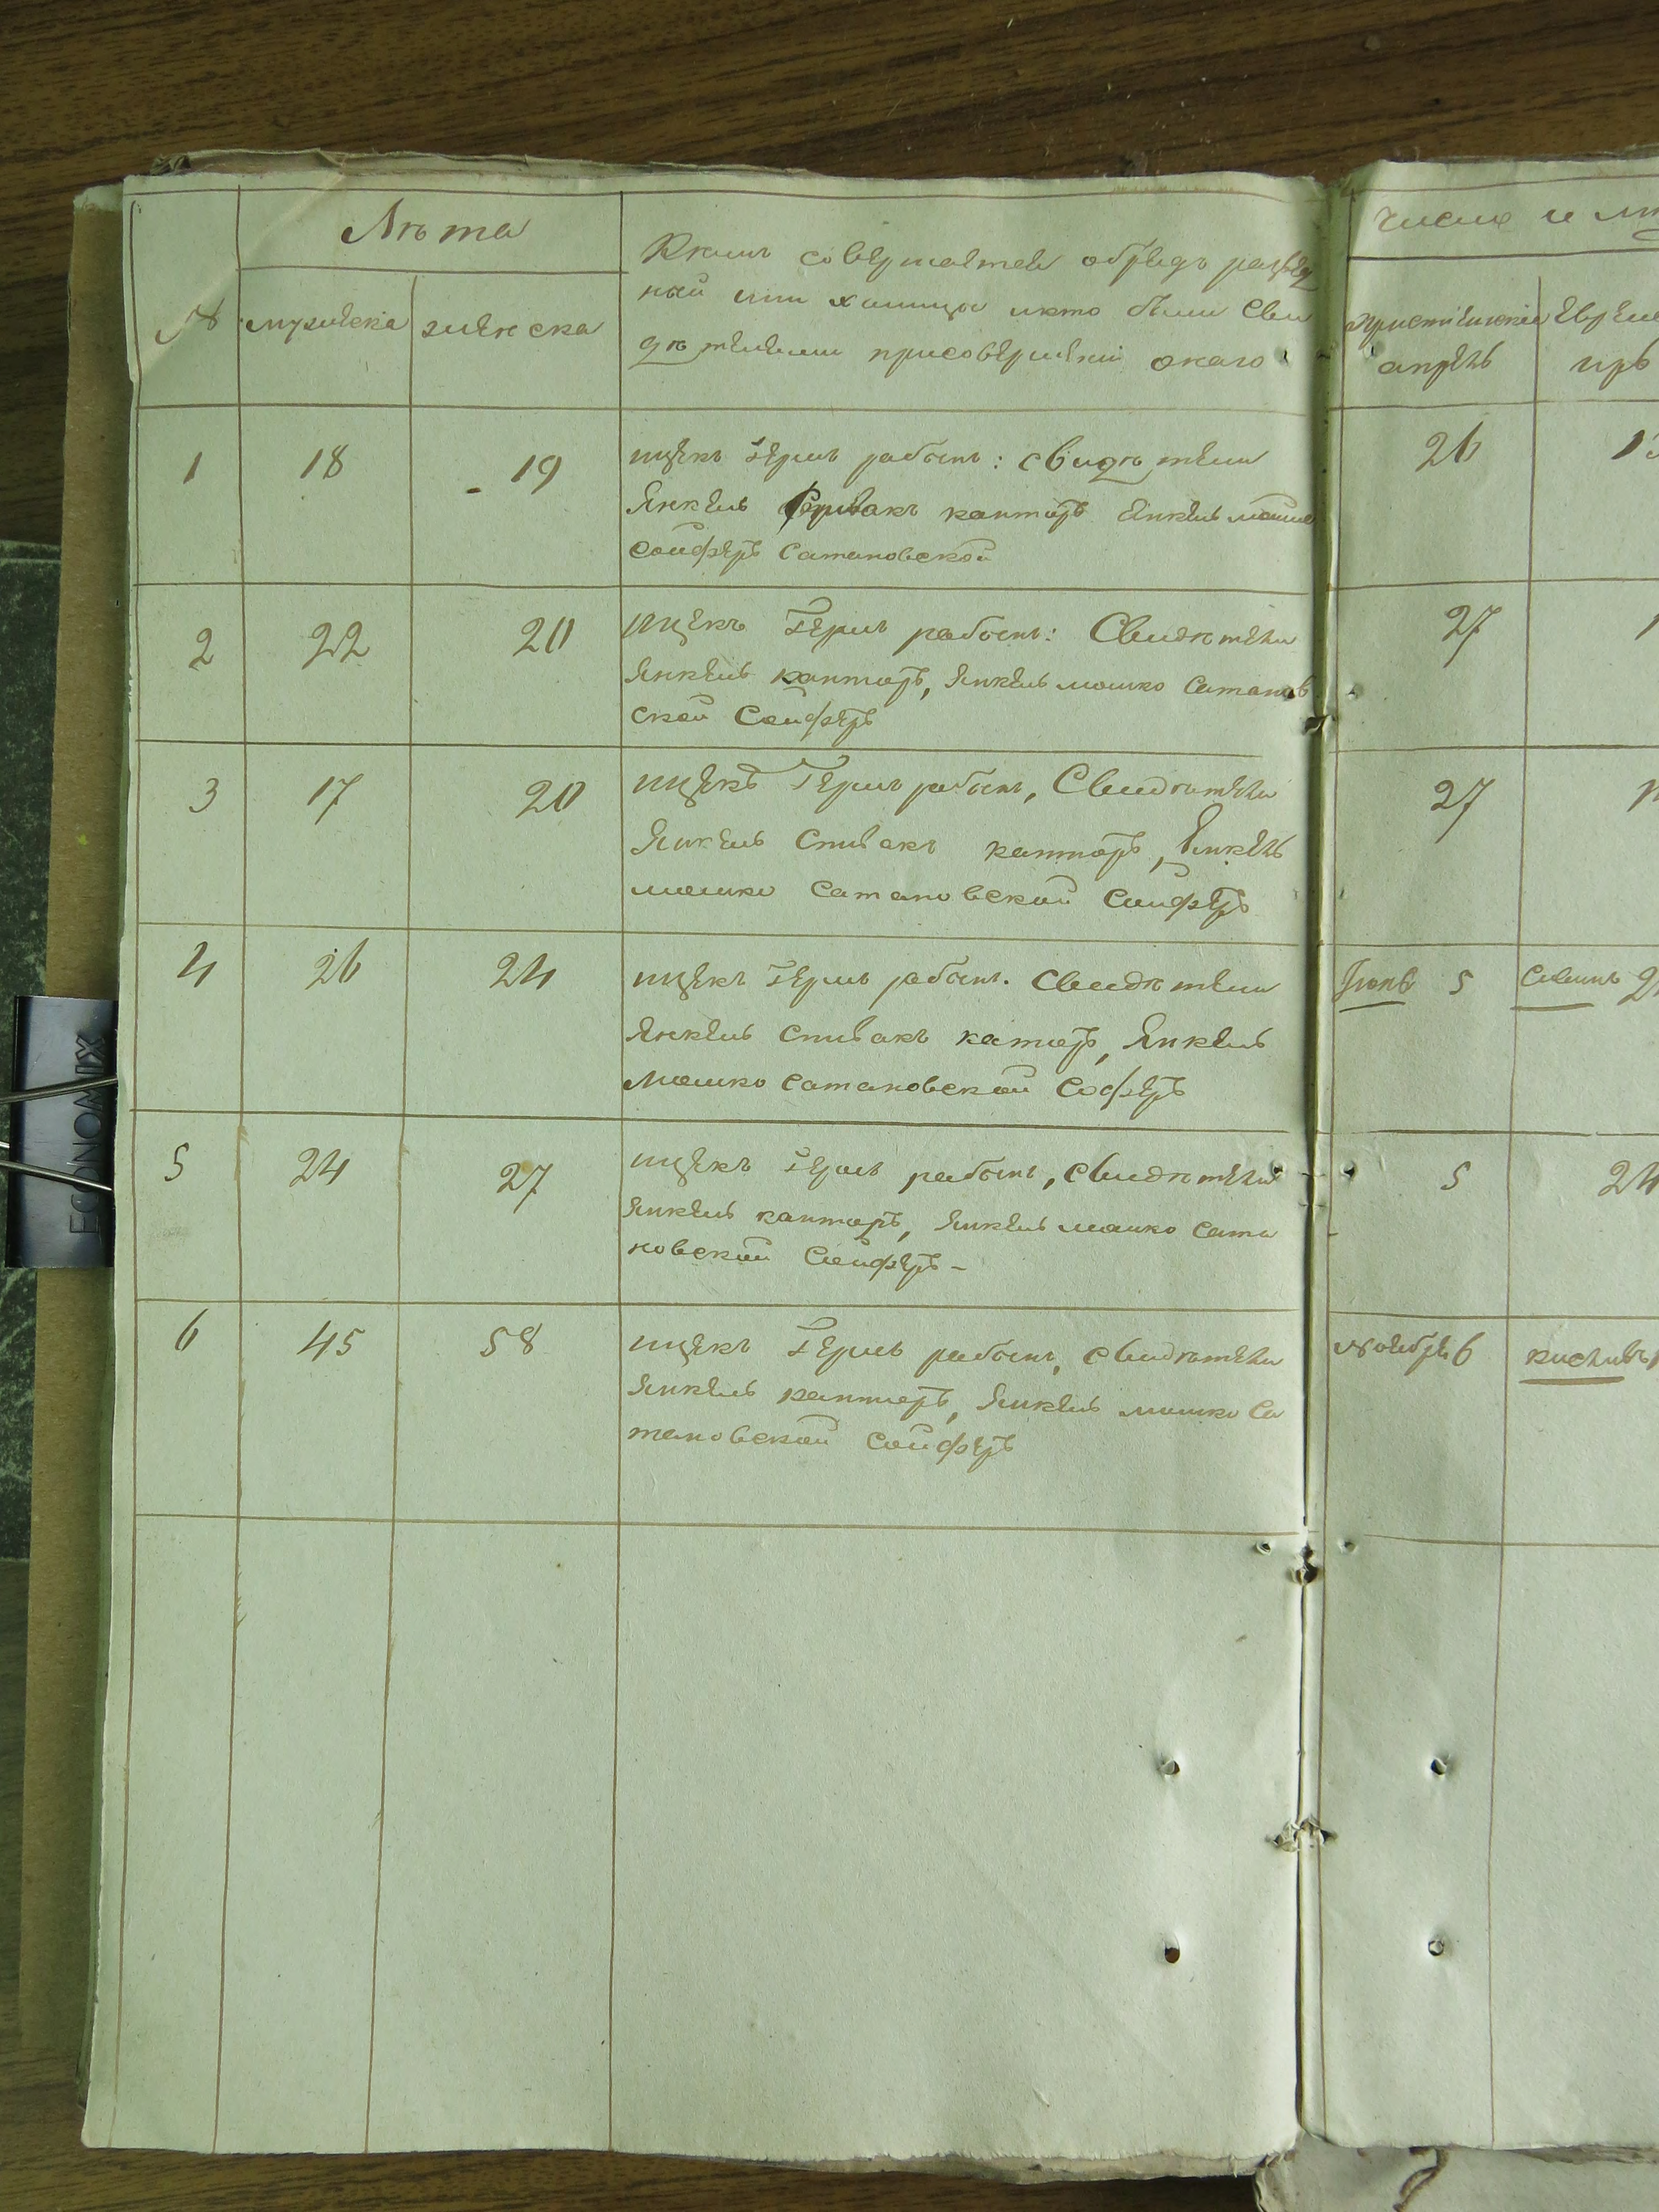 Лѣта
№ мужеска женска
Кѣмъ совершается обрядъ развод
ный или халицы и кто были сви
дѣтелями при совершеніи онаго
число и
христіянскія
апрель иръ
1 18 19 ицекъ Гершъ рабынъ: свидѣтели
Янкель Спивакъ канторъ Янкель мошко
сойферъ Сатановской
26
2 22 20 ицекъ Гершъ рабынъ: Свидѣтели
Янкель канторъ, Янкель мошко Сатанов
ской Сойферъ
27
3 17 20 ицекъ Гершъ рабынъ, Свидѣтели
Янкель Спивакъ канторъ, Янкель
мошко Сатановской Сойферъ
27
4 26 24 ицекъ Гершъ рабынъ. Свидѣтели
Янкель Спивакъ каторъ, Янкель
Мошко Сатановской Софиръ
Іюнь 5 Сивинъ
5 24 27 ицекъ Гершъ рабынъ, свидѣтели
Янкель канторъ, Янкель мошко Сата
новской Сойферъ -
5 24
6 45 58 ицекъ Гершъ рабынъ, свидѣтели
Янкель канторъ, Янкель мошко Са
тановской Сойферъ
Ноябрь 6 кисливъ
ECONOMIX